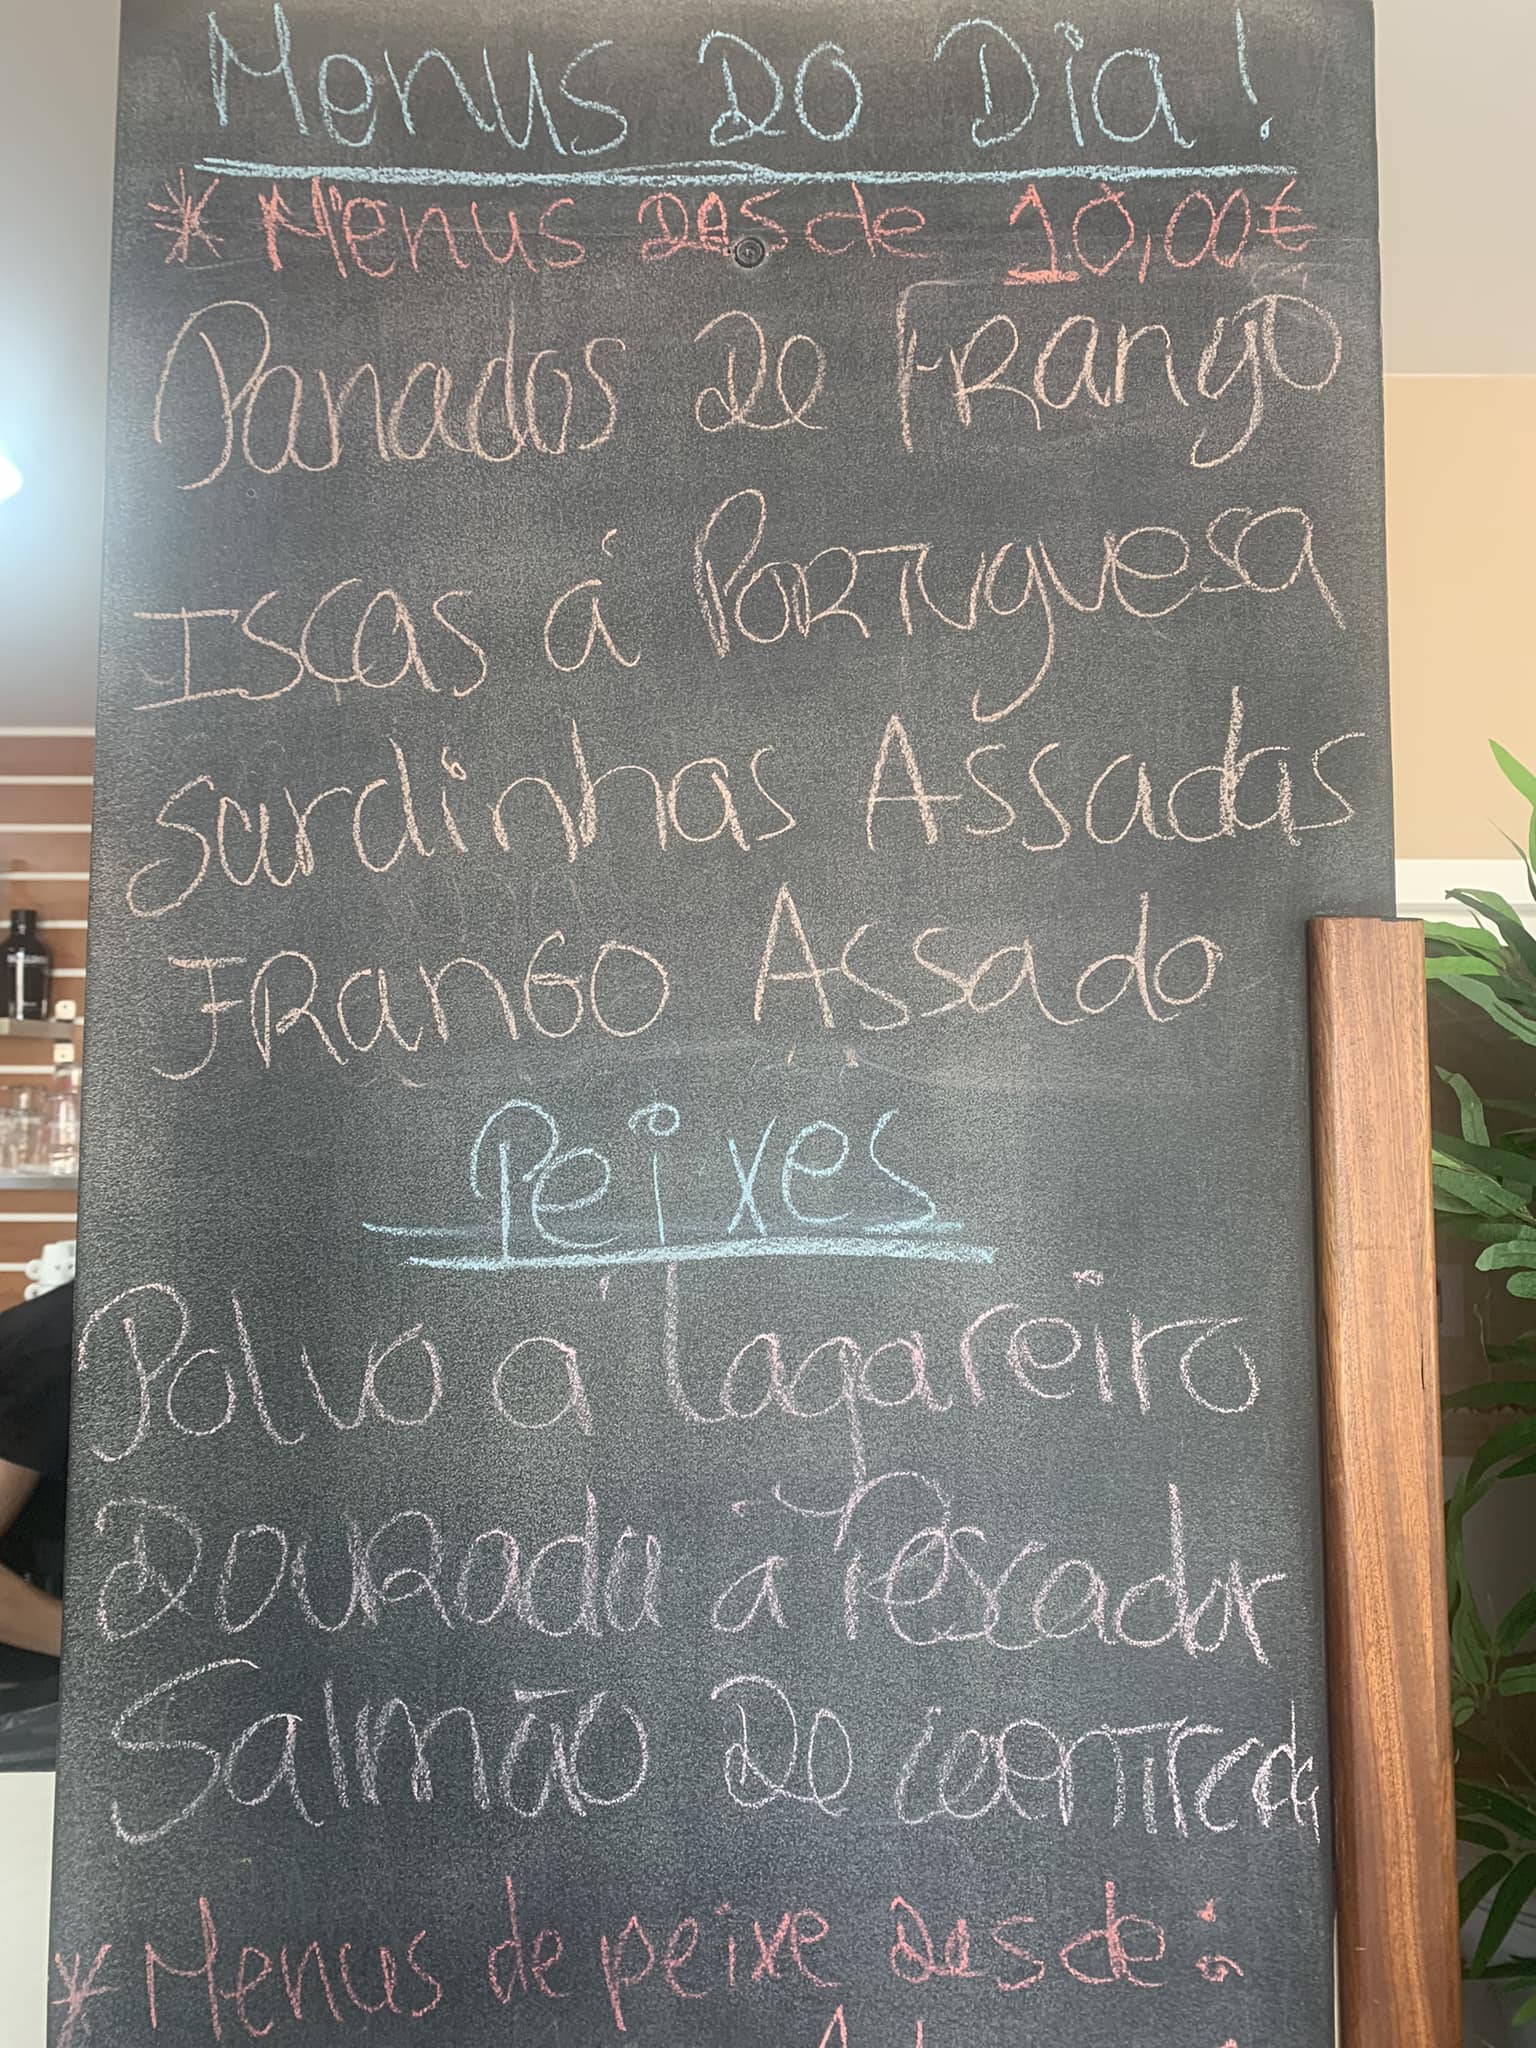 Menus DO Dia!
* Menus Desde 10,00€
Panados De Frango
Iscas á Portuguesa
Sardinhas Assadas
Frango Assado
Peixes
Polvo á lagareiro
Dourada á Pescador
Salmão De
* Menus de peixe Desde: